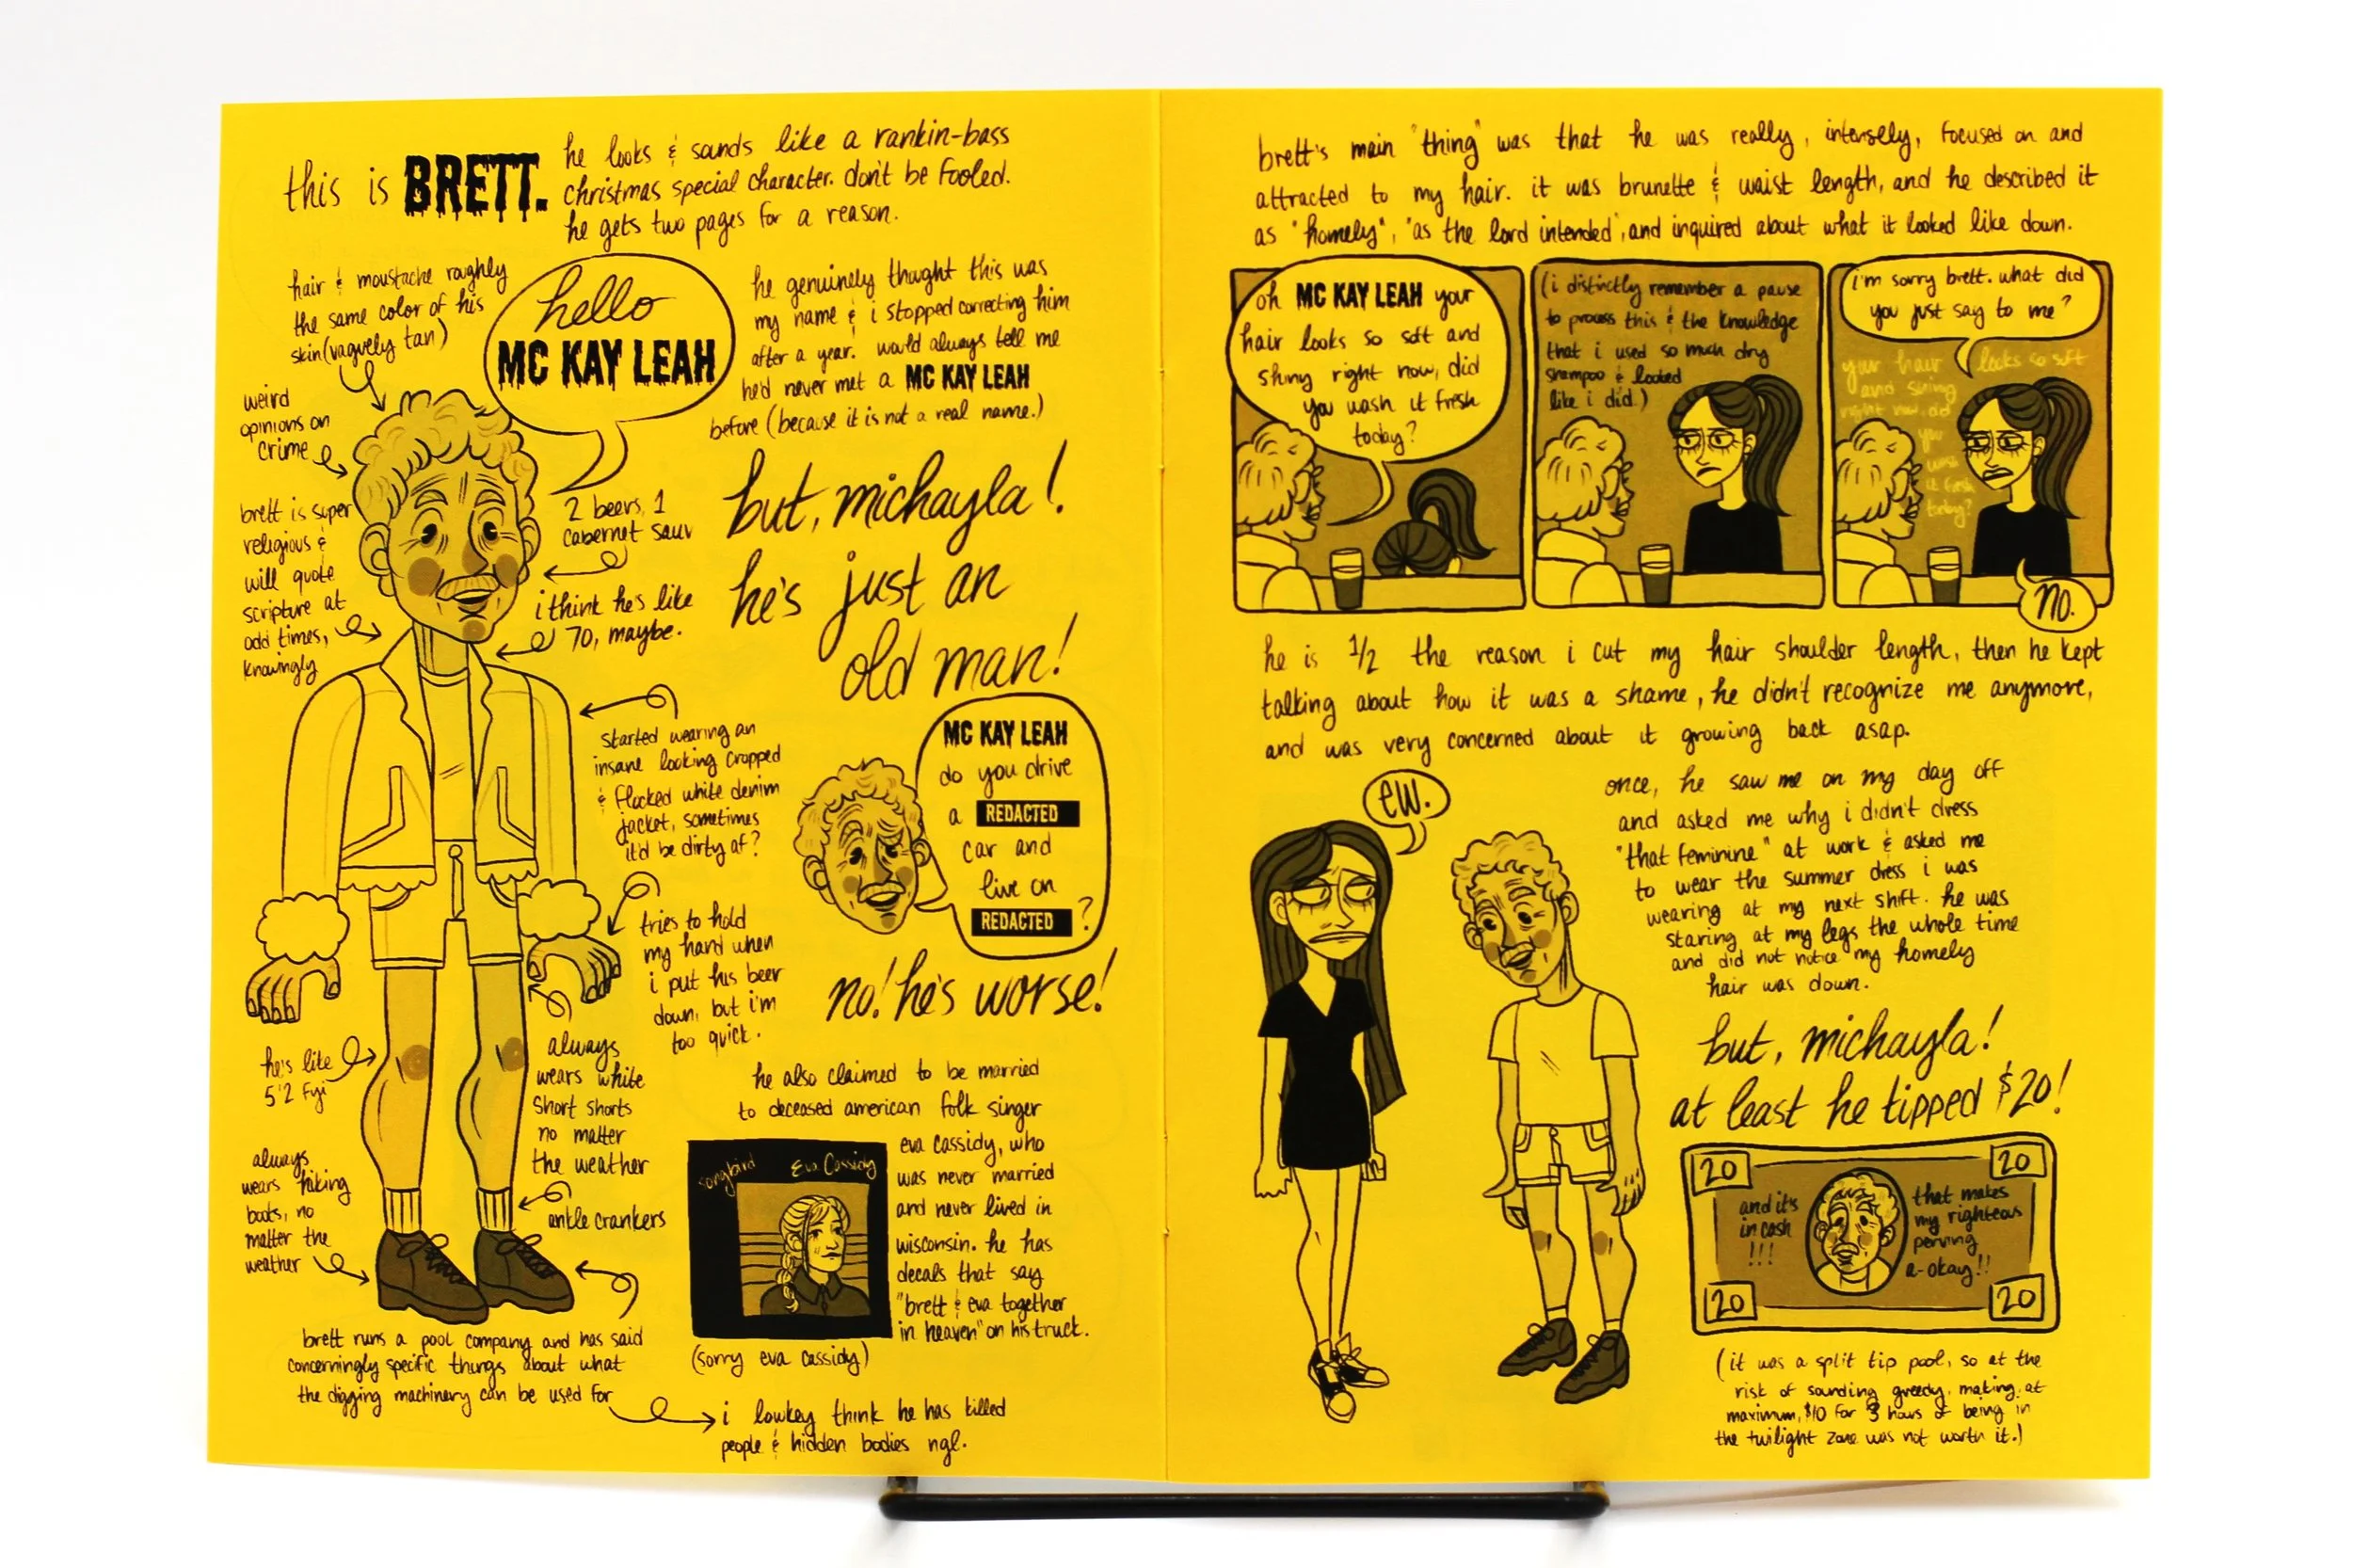 this is BRETT.
he looks & sounds like a rankin-bass
christmas special character. don't be fooled.
he gets two pages for a reason.
hair & moustache roughly
the same color of his
skin (vaguely tan)
hello
MC KAY LEAH
he genuinely thought this was
my name & i stopped correcting him
after a year. would always tell me
he'd never met a MC KAY LEAH
before (because it is not a real name.)
weird
opinions on
crime
brett is super
religious &
will quote
scripture at
odd times,
knowingly
2 beers, 1
cabernet sauv
i think he's like
70, maybe.
but, michayla!
he's just an
old man!
started wearing an
insane looking cropped
& flocked white denim
jacket, sometimes
it'd be dirty af?
MC KAY LEAH
do you drive
a REDACTED
car and
live on
REDACTED ?
tries to hold
my hand when
i put his beer
down, but i'm
too quick.
no! he's worse!
he's like
5'2 fyi
always
wears white
short shorts
no matter
the weather
he also claimed to be married
to deceased american folk singer
eva cassidy, who
was never married
and never lived in
wisconsin. he has
decals that say
"brett & eva together
in heaven" on his truck.
songbird Eva Cassidy
(sorry eva cassidy)
always
wears hiking
boots, no
matter the
weather
ankle crankers
brett runs a pool company and has said
concerningly specific things about what
the digging machinery can be used for
i lowkey think he has killed
people & hidden bodies ngl.
brett's main "thing" was that he was really, intensely, focused on and
attracted to my hair. it was brunette & waist length, and he described it
as "homely", "as the lord intended", and inquired about what it looked like down.
oh MC KAY LEAH your
hair looks so soft and
shiny right now, did
you wash it fresh
today?
(i distinctly remember a pause
to process this & the knowledge
that i used so much dry
shampoo & looked
like i did.)
i'm sorry brett. what did
you just say to me?
your hair looks so soft
and shiny
right now, did
you
wash
it fresh
today?
no.
he is 1/2 the reason i cut my hair shoulder length, then he kept
talking about how it was a shame, he didn't recognize me anymore,
and was very concerned about it growing back asap.
ew.
once, he saw me on my day off
and asked me why i didn't dress
"that feminine" at work & asked me
to wear the summer dress i was
wearing at my next shift. he was
staring at my legs the whole time
and did not notice my homely
hair was down.
but, michayla!
at least he tipped $20!
20 20
and it's
in cash
!!!
that makes
my righteous
perving
a-okay!!
20 20
(it was a split tip pool, so at the
risk of sounding greedy, making, at
maximum, $10 for 3 hours of being in
the twilight zone was not worth it.)